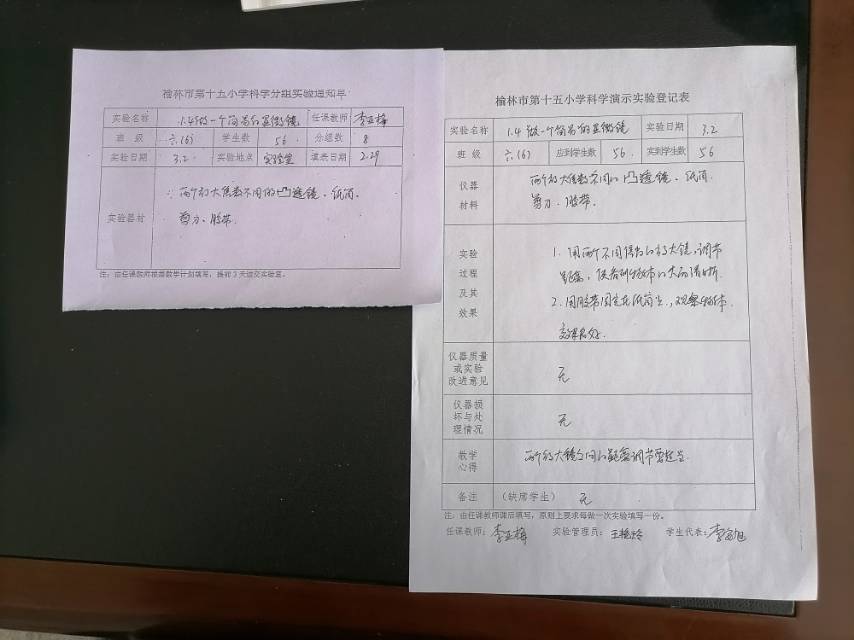 榆林市第十五小学科学分组实验通知单
实验名称 1.4做一个简易的显微镜 任课教师 李亚梅
班 级 六(6) 学生数 56 分组数 8
实验日期 3.2 实验地点 实验室 填表日期 2.29
实验器材
两个放大倍数不同的凸透镜、纸筒
剪刀、胶带.
注：由任课教师根据教学计划填写，提前3天送交实验室。
榆林市第十五小学科学演示实验登记表
实验名称 1.4 做一个简易的显微镜 实验日期 3.2
班 级 六(6) 应到学生数 56 实到学生数 56
仪器材料
两个放大倍数不同的凸透镜、纸筒.
剪刀、胶带.
实验过程及其效果
1. 用两个不同倍数的放大镜,调节
距离,使看到物体
2. 用胶带固定在纸筒上,观察物体.
仪器质量或实验改进意见 无
仪器损坏与处理情况 无
教学心得 两个放大镜之间的距离调节要适当.
备注 (缺席学生) 无
注：由任课教师课后填写，原则上要求每做一次实验填写一份。
任课教师：李亚梅 实验管理员：王艳玲 学生代表：